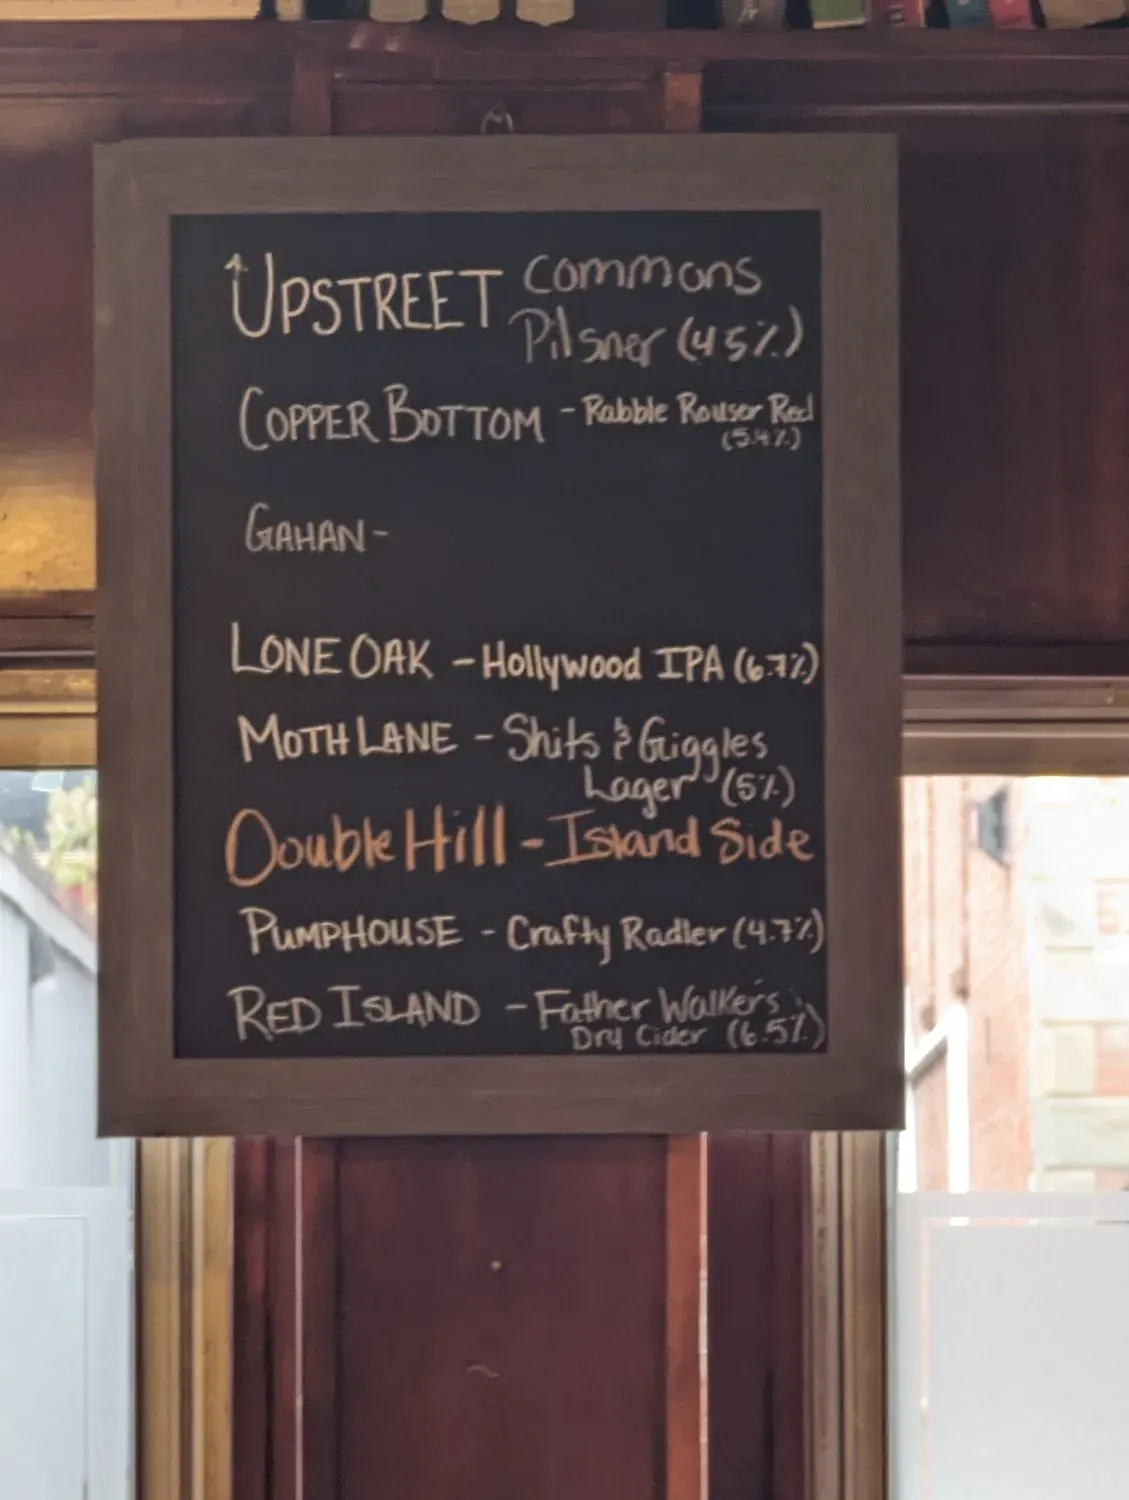 UPSTREET Commons
Pilsner (4.5%)
COPPER BOTTOM - Rabble Rouser Red
(5.4%)
GAHAN -
LONE OAK - Hollywood IPA (6.7%)
MOTH LANE - Shits & Giggles
Lager (5%)
Double Hill - Island Side
PUMPHOUSE - Crafty Radler (4.7%)
RED ISLAND - Father Walkers
Dry Cider (6.5%)